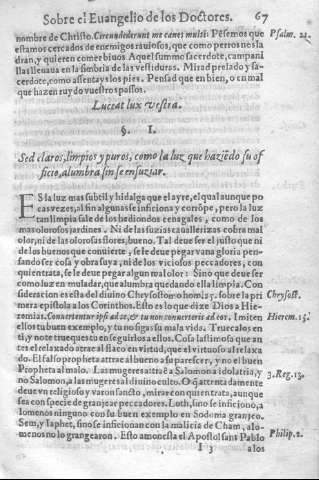 Sobre el Euangelio de los Doctores. 67
nombre de Christo. Circundederunt me canes multi: Pẽsemos que
estamos cercados de enemigos rauiosos, que como perros nos la
dran, y quieren comer biuos. Aquel summo sacerdote, campani
llas lleuaua en la fimbria de las vestiduras. Mirad prelado y sa-
cerdote, como assentays los pies. Pensad que en bien, o en mal
que hazen ruydo vuestros passos.
Psalm. 21.
Luceat lux vestra.
§. I.
Sed claros, limpios y puros, como la luz que haziẽdo su of
ficio, alumbra sin se ensuziar.
ES la luz mas subtil y hidalga que el ayre, el qual aunque po
cas vezes, al fin algunas se inficiona y corõpe, pero la luz
tan limpia sale de los hediondos cenagales, como de los
mas olorosos jardines. Ni de las suzias cauallerizas cobra mal
olor, ni de las olorosas flores, bueno. Tal deue ser el justo que ni
de los buenos que conuierte, se le deue pegar vana gloria pen-
sando ser cosa y obra suya, ni de los viciosos peccadores, con
quien trata, se le deue pegar algun mal olor: Sino que deue ser
como luz en muladar, que alumbra quedando ella limpia. Con
sideracion es esta del diuino Chrysostomo homi. 15. sobre la pri
mera epistola a los Corinthios. Esto es lo que dize Dios a Hie-
remias. Conuertentur ipsi ad te, & tu non conuerteris ad eos. Imiten
ellos tu buen exemplo, y tu no sigas su mala vida. Truecalos en
ti, y no te trueques tu en seguirlos a ellos. Cosa lastimosa que an
tes el relaxado atrae al flaco en virtud, que el virtuoso al relaxa
do. El falso propheta atrae al bueno a su parescer, y no el buen
Propheta al malo. Las mugeres atraẽ a Salomon a idolatria, y
no Salomon, a las mugeres al diuino culto. O q̃ attentadamente
deue vn religioso y varon sancto, mirar con quien trata, aunque
sea con specie de granjear peccadores. Loth, sino se inficiono, a
lomenos ninguno con su buen exemplo en Sodoma granjeo.
Sem, y Iaphet, sino se inficionan con la malicia de Cham, alo-
menos no lo grangearon. Esto amonesta el Apostol sant Pablo
Chrysost.
Hierem. 15.
3. Reg. 13.
Philip. 2.
I 3 a los